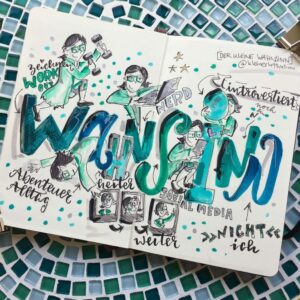 [DER KLEINE WAHNSINN]
zeichnen
WORK
OUT
NERD
introvertiert
WAHNSINN
Abenteuer
Alltag
heiter
SOCIAL MEDIA
weiter
»NIGHT«
ich